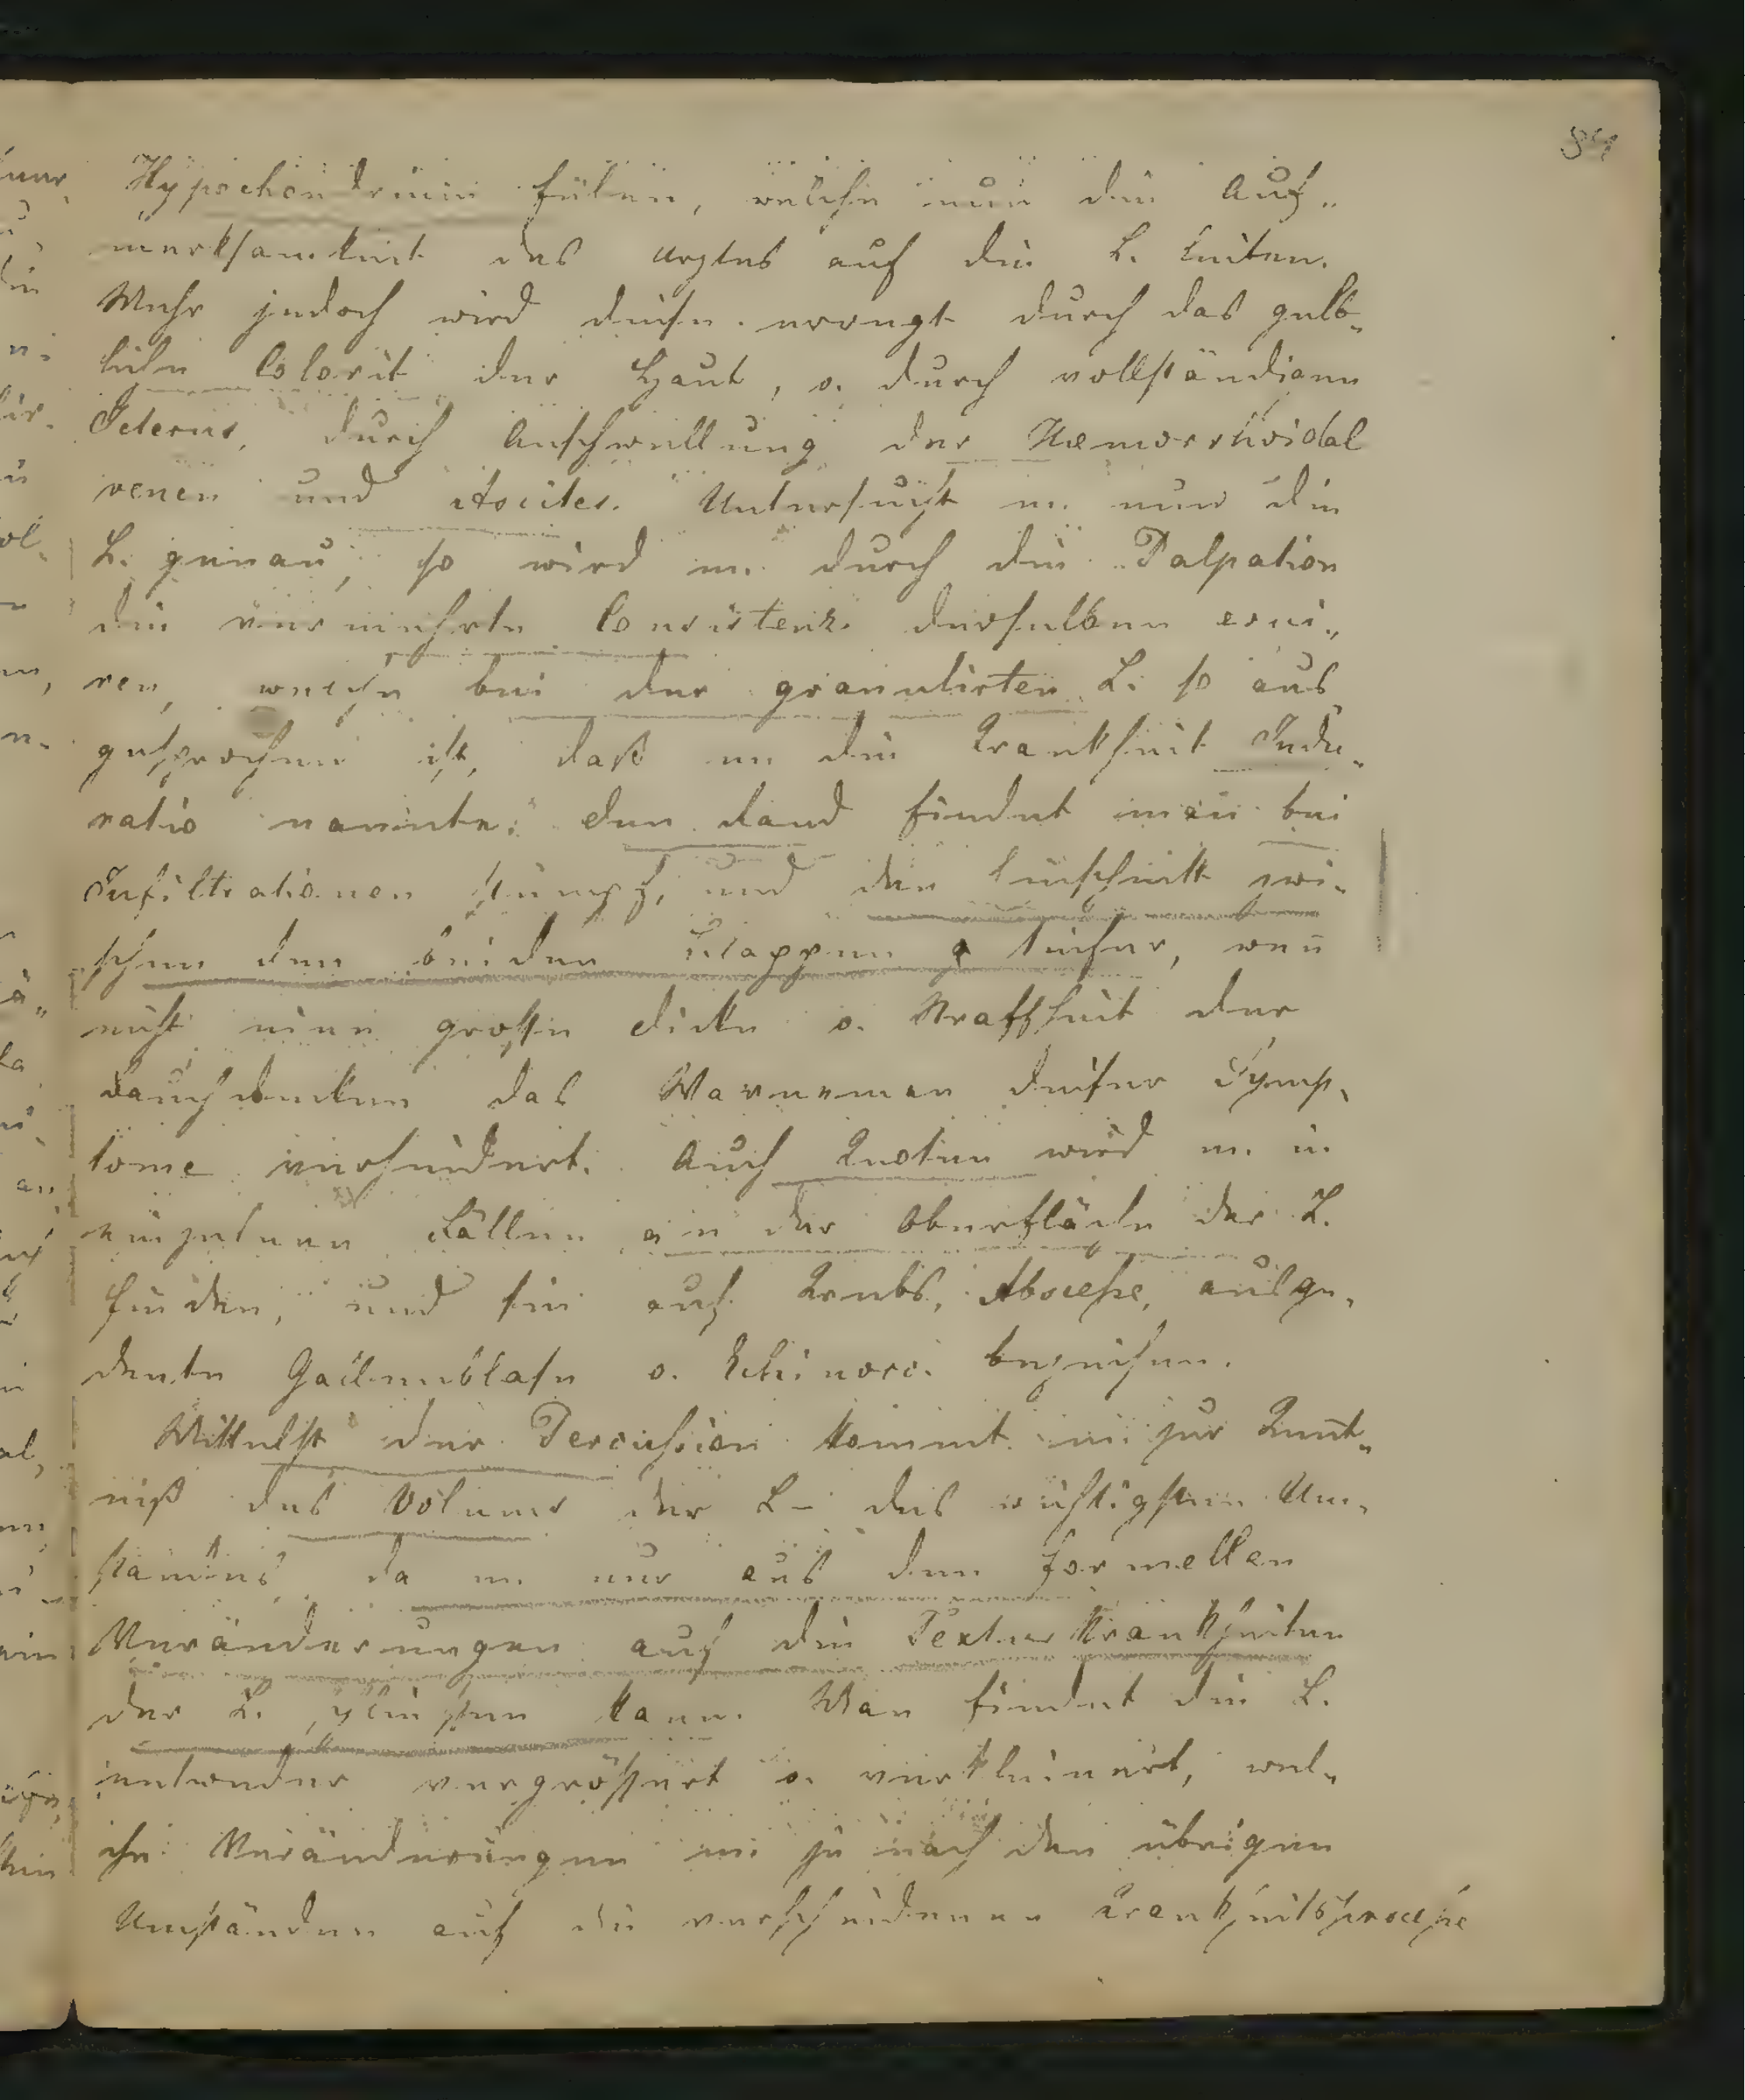 84
Hypochondrium fülen, welche nun die Auf„
merksamkeit des Arztes auf die L. leiten.
Mehr jedoch wird diese erregt durch das gelb„
liche Colorit der Haut, o. durch vollständigen
Icterus, durch Anschwellung der Haemorrhoidal
venen und Ascites. Untersucht m. nun die
L. genau, so wird m. durch die Palpation
die vermehrte Consistenz derselben erui„
ren, welche bei der granulirten L. so aus„
gesprochen ist, daß m die Krankheit Indu„
ratio nannte: den Rand findet man bei
Infiltrationen stumpf, und den Einschnitt zwi„
schen den beiden Lappen seichter, wen̄
nicht eine große Dicke o. Straffheit der
Bauchdecken das Warnemen dieser Symp„
tome verhindert. Auch Knoten wird m. in
einzelnen Fällen an der Oberfläche der L.
finden, und sie auf Krebs, Abscesse, ausge„
dente Gallenblase o. Echinococ. beziehen.
Mittelst der Percussion kommt m. zur Kent̄„
niß des Volums der L – des wichtigsten Um„
standes, da m. nur aus den formellen
Veränderungen auf die Texturkrankheiten
der L. schließen kann. Man findet die L.
entweder vergrößert o. verkleinert, wel„
che Veränderungen m. je nach den übrigen
Umständen auf die verschiedenen Krankheitsprocesse